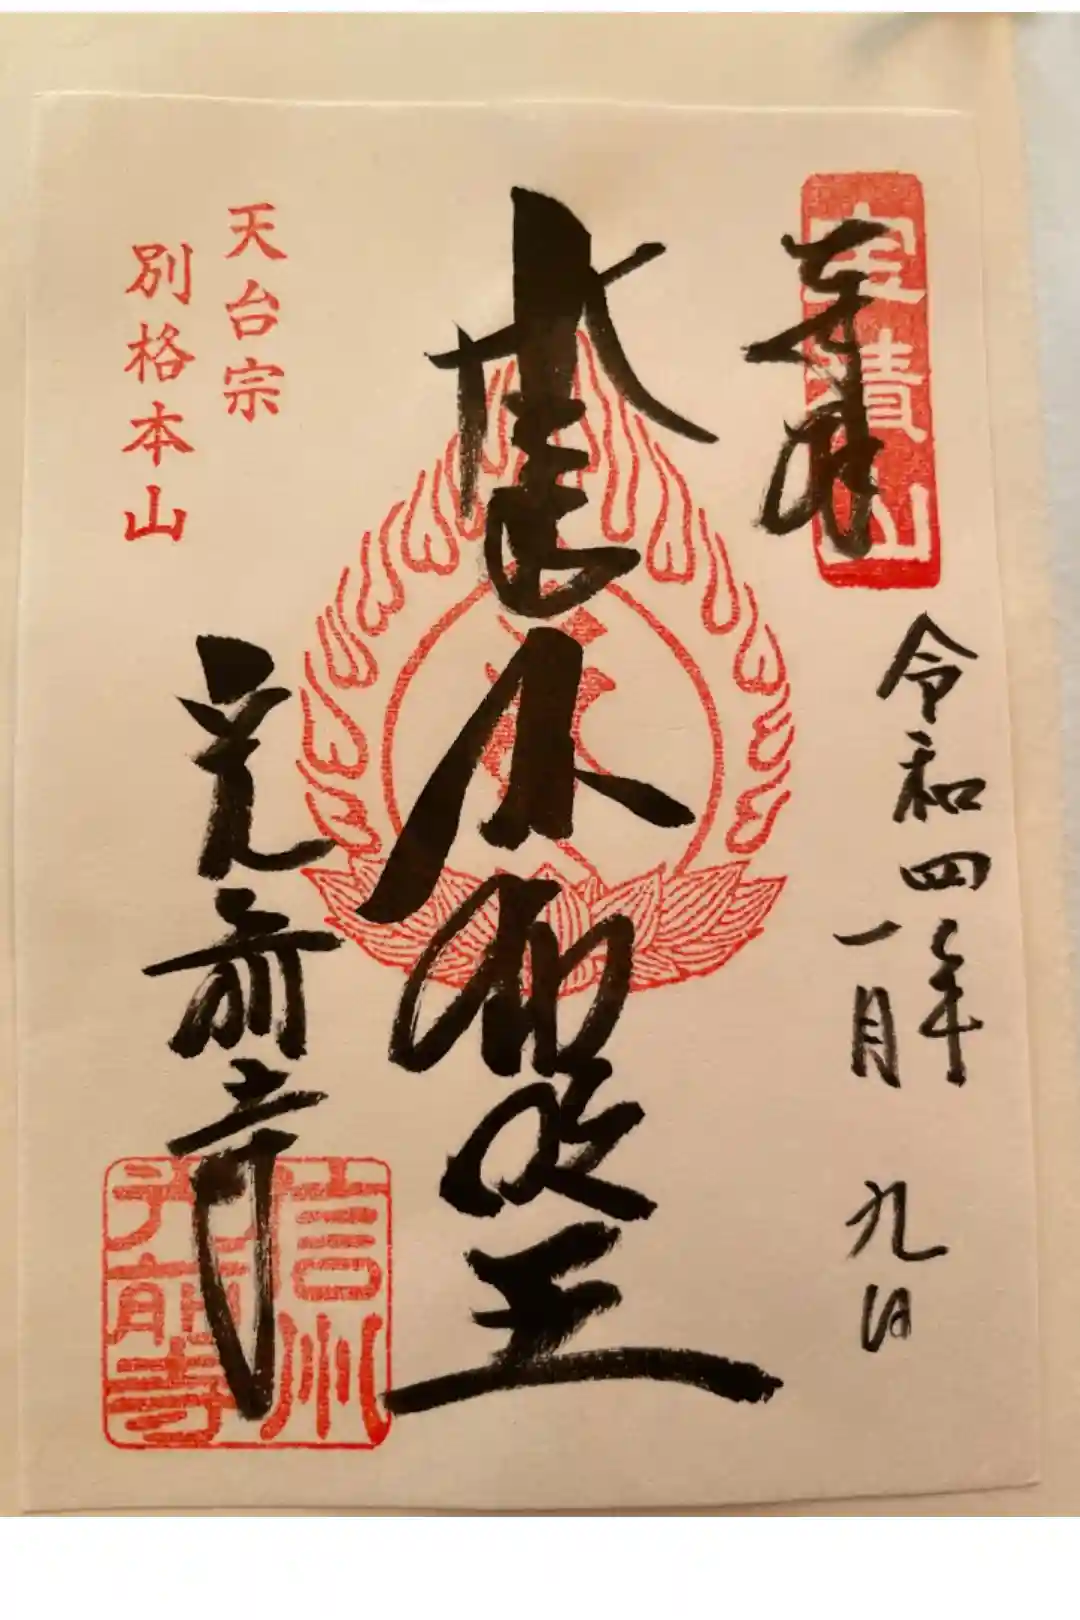 奉拝
宝積山
令和四年
一月九日
不動明王
天台宗
別格本山
光前寺
信州
光前寺